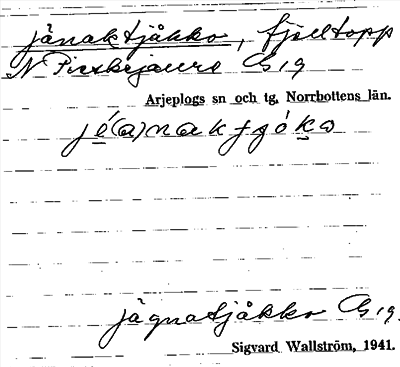 jånaktjåkko, fjälltopp
N Pieskejaure G 19
Arjeplogs sn och tg, Norrbottens län.
jägnatjåkko G 19
Sigvard Wallström, 1941.